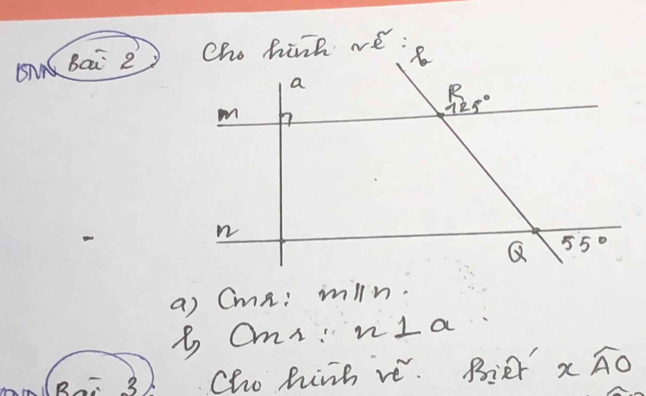 BTVN Bài 2: Cho hình vẽ:
b
a
R
m 125°
n
Q 55°
a) Cmr: m // n.
b) Cmr: n ⊥ a
Bài 3: Cho hình vẽ. Biết xÂO